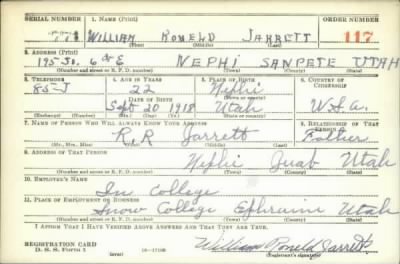 SERIAL NUMBER 1. NAME (Print) ORDER NUMBER
WILLIAM RONELD JARRETT 117
(First) (Middle) (Last)
2. ADDRESS (Print)
195 So. 6th E NEPHI SANPETE UTAH
(Number and street or R. F. D. number) (Town) (County) (State)
3. TELEPHONE 4. AGE IN YEARS 5. PLACE OF BIRTH 6. COUNTRY OF CITIZENSHIP
85-J 22 Nephi
DATE OF BIRTH
Sept 20 1918 Utah U.S.A.
(Exchange) (Number) (Mo.) (Day) (Yr.) (State or country)
7. NAME OF PERSON WHO WILL ALWAYS KNOW YOUR ADDRESS 8. RELATIONSHIP OF THAT PERSON
R. R Jarrett Father
(Mr., Mrs., Miss) (First) (Middle) (Last)
9. ADDRESS OF THAT PERSON
Nephi Juab Utah
(Number and street or R. F. D. number) (Town) (County) (State)
10. EMPLOYER'S NAME
In College
11. PLACE OF EMPLOYMENT OR BUSINESS
Snow College Ephraim Utah
(Number and street or R. F. D. number) (Town) (County) (State)
I AFFIRM THAT I HAVE VERIFIED ABOVE ANSWERS AND THAT THEY ARE TRUE.
REGISTRATION CARD
D. S. S. Form 1 (over) William Roneld Jarrett
(Registrant's signature)